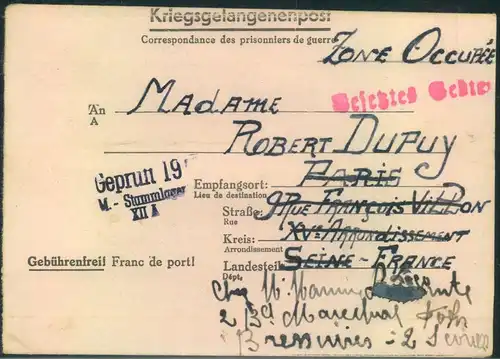 Kriegsgefangenenpost
Correspondance des prisonniers de guerre
ZONE OCCUPÉE
Besetztes Gebiet
MADAME
An
A
ROBERT DUPUY
Geprüft 19
M.-Stammlager
XII A
Empfangsort: PARIS
Lieu de destination
Straße: 9 RUE FRANÇOIS VILLON
Rue
Kreis: XVe ARRONDISSEMENT
Arrondissement
Gebührenfrei! Franc de port!
Landesteil: SEINE-FRANCE
Dépt.
Chez M.
2 Bd Marechal Foch
Bressuires - 2 Sevres